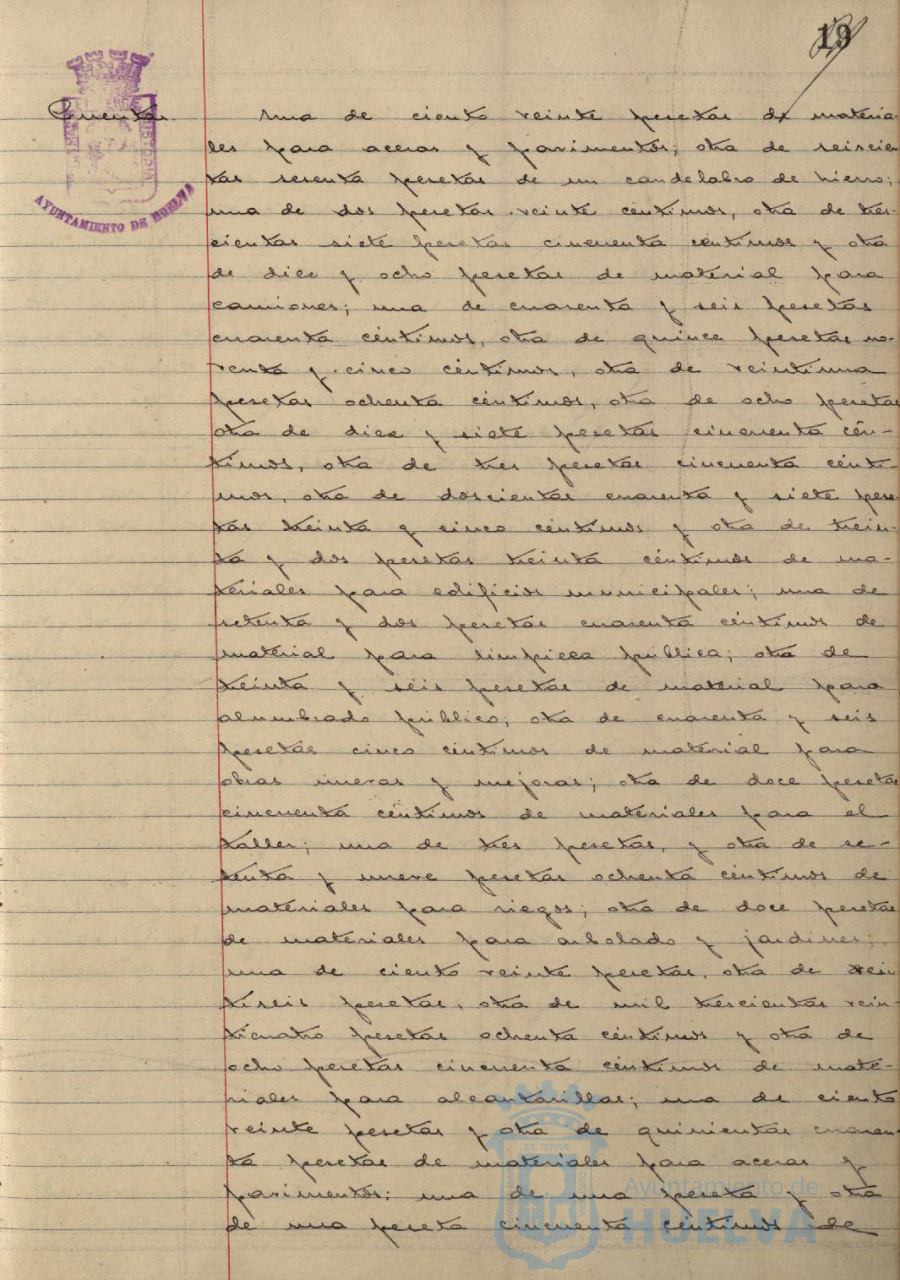 19
AYUNTAMIENTO DE HUELVA
Cuentas.
Una de ciento veinte pesetas de materia-
les para aceras y pavimentos; otra de seiscien-
tas sesenta pesetas de un candelabro de hierro;
una de dos pesetas veinte céntimos, otra de tres-
cientas siete pesetas cincuenta céntimos y otra
de diez y ocho pesetas de material para
camiones; una de cuarenta y seis pesetas
cuarenta céntimos, otra de quince pesetas no-
venta y cinco céntimos, otra de veintiuna
pesetas ochenta céntimos, otra de ocho pesetas
otra de diez y siete pesetas cincuenta cén-
timos, otra de tres pesetas cincuenta cénti-
mos, otra de doscientas cuarenta y siete pese-
tas treinta y cinco céntimos y otra de trein-
ta y dos pesetas treinta céntimos de ma-
teriales para edificios municipales; una de
setenta y dos pesetas cuarenta céntimos de
material para limpieza pública; otra de
treinta y séis pesetas de material para
alumbrado público, otra de cuarenta y seis
pesetas cinco céntimos de material para
obras nuevas y mejoras; otra de doce pesetas
cincuenta céntimos de materiales para el
taller; una de tres pesetas, y otra de se-
tenta y nueve pesetas ochenta céntimos de
materiales para riegos; otra de doce pesetas
de materiales para arbolado y jardines;
una de ciento veinte pesetas, otra de vein-
tiseis pesetas, otra de mil trescientas vein-
ticuatro pesetas ochenta céntimos y otra de
ocho pesetas cincuenta céntimos de maté-
riales para alcantarillas; una de ciento
veinte pesetas y otra de quinientas cuaren-
ta pesetas de materiales para aceras y
pavimentos; una de una peseta y otra
de una peseta cincuenta céntimos de
Ayuntamiento de
HUELVA